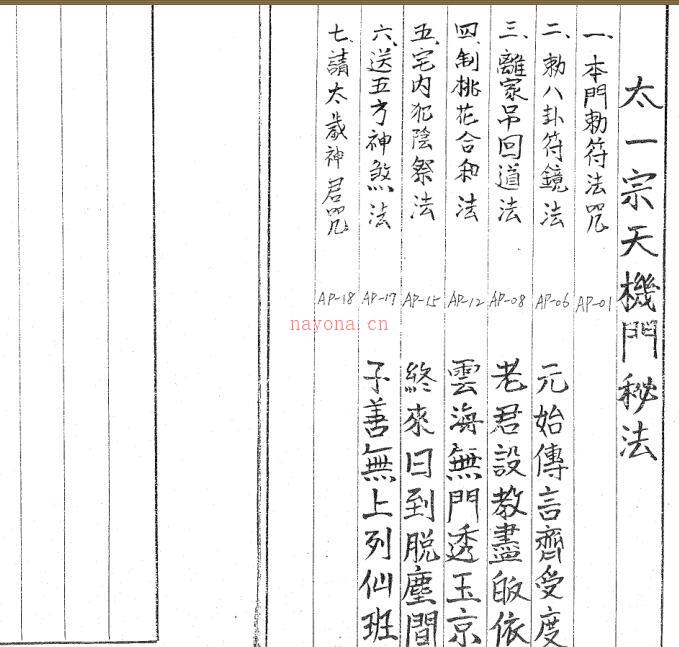 太一宗天機門秘法
一、本門勅符法咒 AP-01
二、勅八卦符鏡法 AP-06
三、離家吊回道法 AP-08
四、制桃花合和法 AP-12
五、宅内犯陰祭法 AP-15
六、送五方神煞法 AP-17
七、請太歲神君咒 AP-18
元始傳言齊受度
老君設教盡皈依
雲海無門透玉京
終來日到脱塵間
子善無上列仙班
nayona.cn